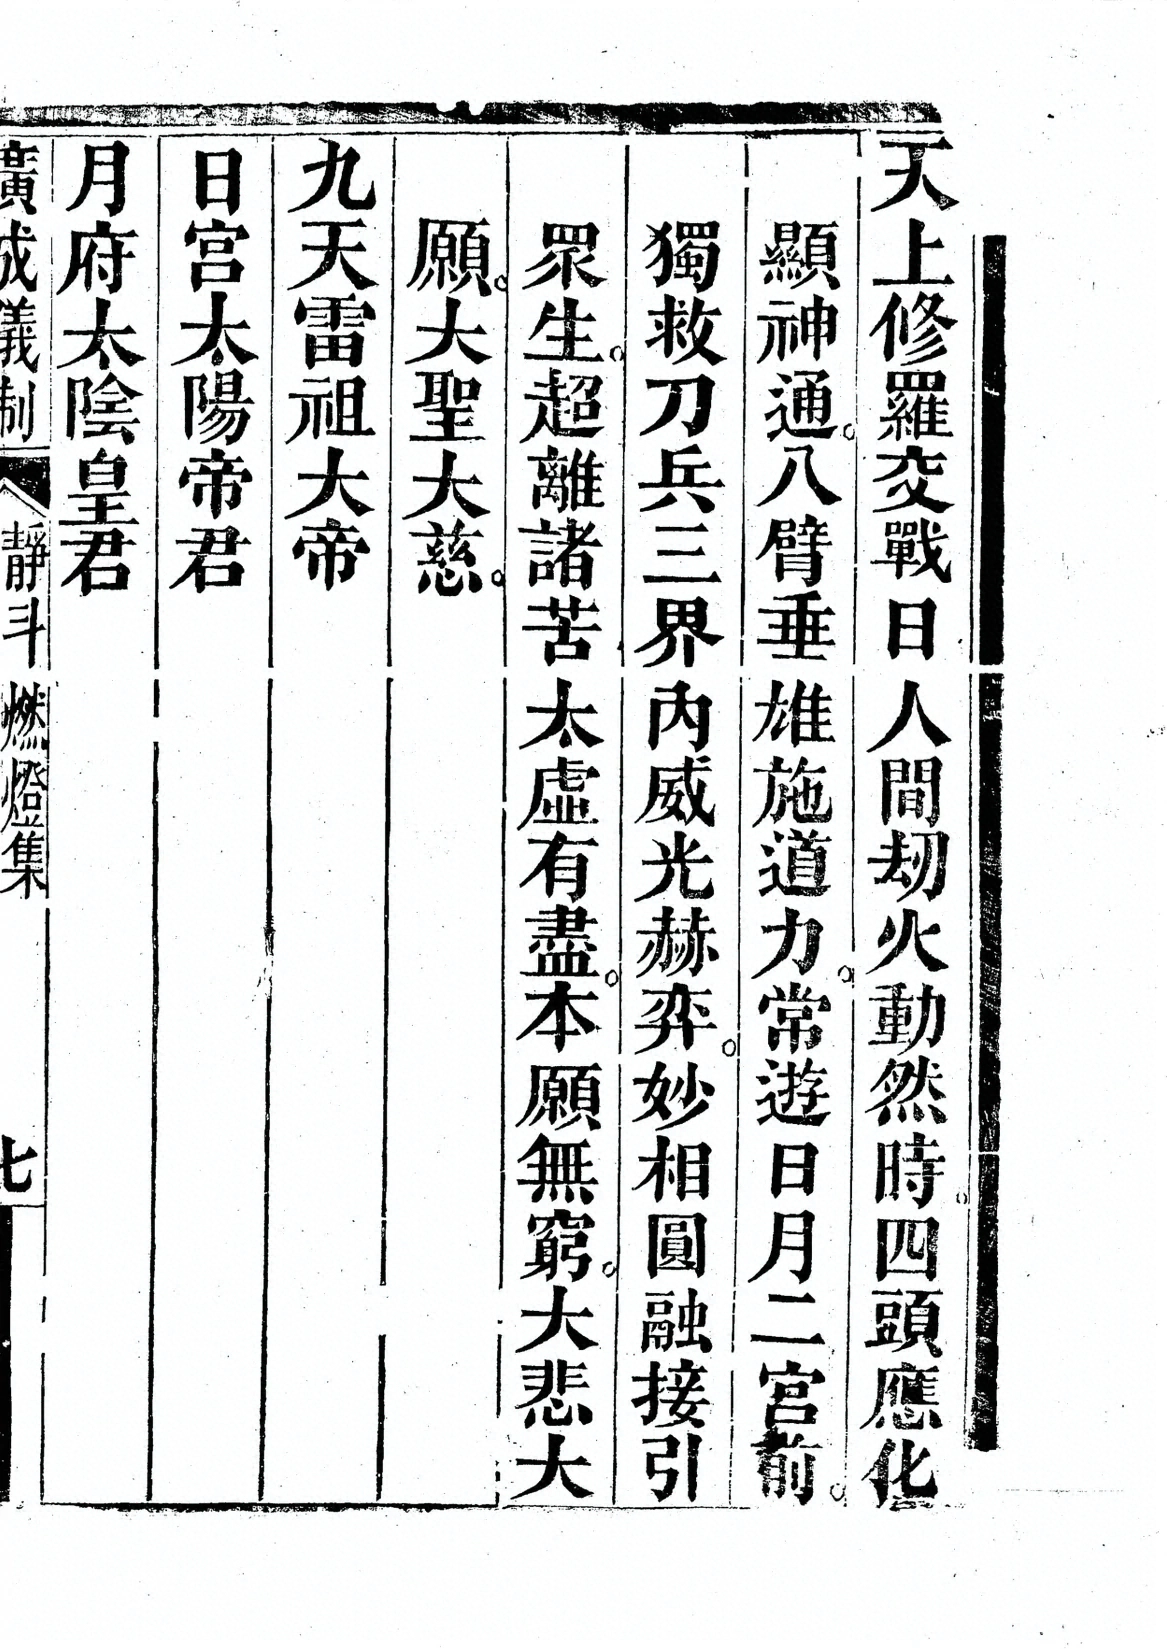 天上修羅交戰日人間刼火動然時。四頭應化
顯神通。八臂垂雄施道力。常遊日月二宮前。
獨救刀兵三界內威光赫弈。妙相圓融接引
眾生。超離諸苦太虛有盡。本願無窮。大悲大
願。大聖大慈。
九天雷祖大帝
日宮太陽帝君
月府太陰皇君
廣成儀制 靜斗燃燈集 七